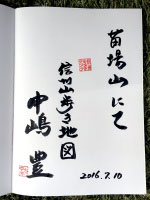 苗場山にて
信州山歩き地図
中嶋豊
2016.7.10